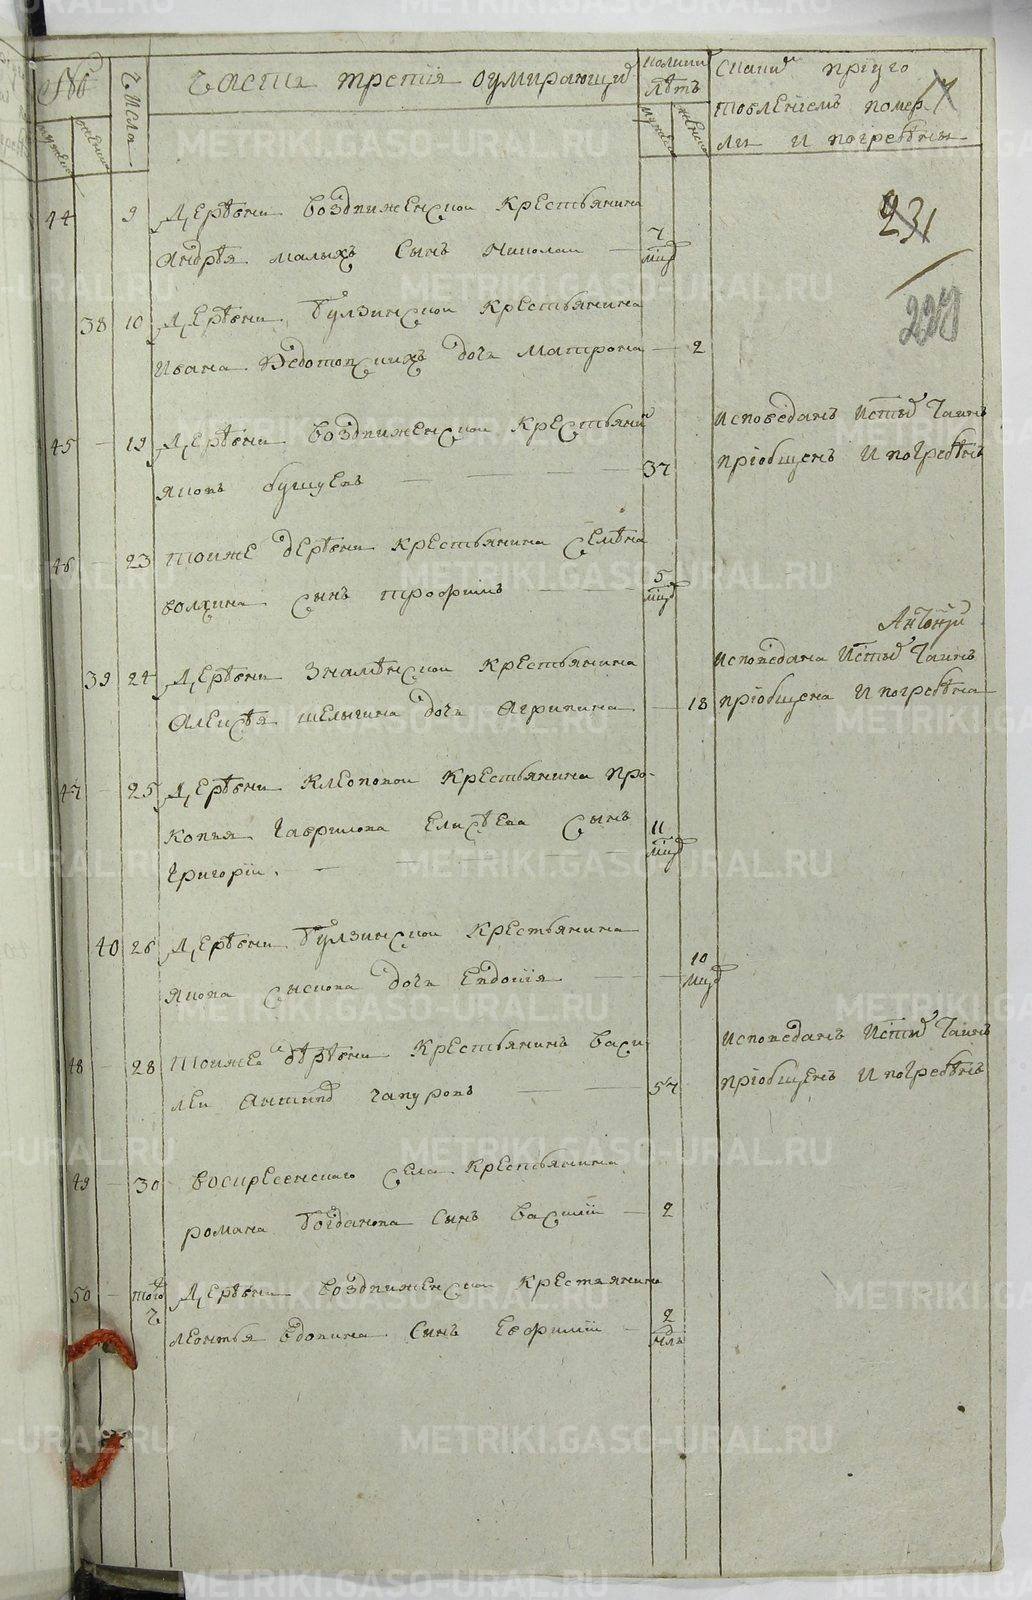 №
мужеска
женска
Числа
Часть третїя оумирающих
коликих
лѣтъ
мужеска
женска
приуго
товленїемъ помер
ли и погребены
231
229
44 9 Деревни воздвиженской Крестьянина
Андрѣя малыхъ сынъ Николай — 7
мцъ
38 10 Деревни Булзинской Крестьянина
Ивана Федотовскихъ дочь Матрона — 2
45 — 19 Деревни воздвиженской Крестьянин
Яковъ бушуевъ — 37
Исповѣданъ Истых Таинъ
прїобщенъ И погребенъ
46 — 23 Тоиже деревни крестьянина Семена
волхина сынъ трофимъ — 5
мцъ
Антоній
39 24 Деревни Знаменской Крестьянина
Алексѣя шелыгина дочь Агрипина — 18
Исповѣдана Истых Таинъ
прїобщена И погребена
47 — 25 Деревни Клеопиной Крестьянина про-
копья Гаврилова Елисѣева сынъ 11
мцъ
Григорїи. —
40 26 Деревни Булзинской Крестьянина
Якова сыскова дочь Евдокїя — 10
мцъ
48 — 28 Тоиже деревни Крестьянинъ васи
леи чапуровъ — 57
Исповѣданъ Истых Таинъ
прїобщенъ И погребенъ
49 — 30 воскресенскаго села Крестьянина
романа Богданова сынъ василїи — 2
50 — того
ч Деревни воздвиженской Крестьянина
леонтья вдовина сынъ Евфимїи — 2
нед
METRIKI.GASO-URAL.RU